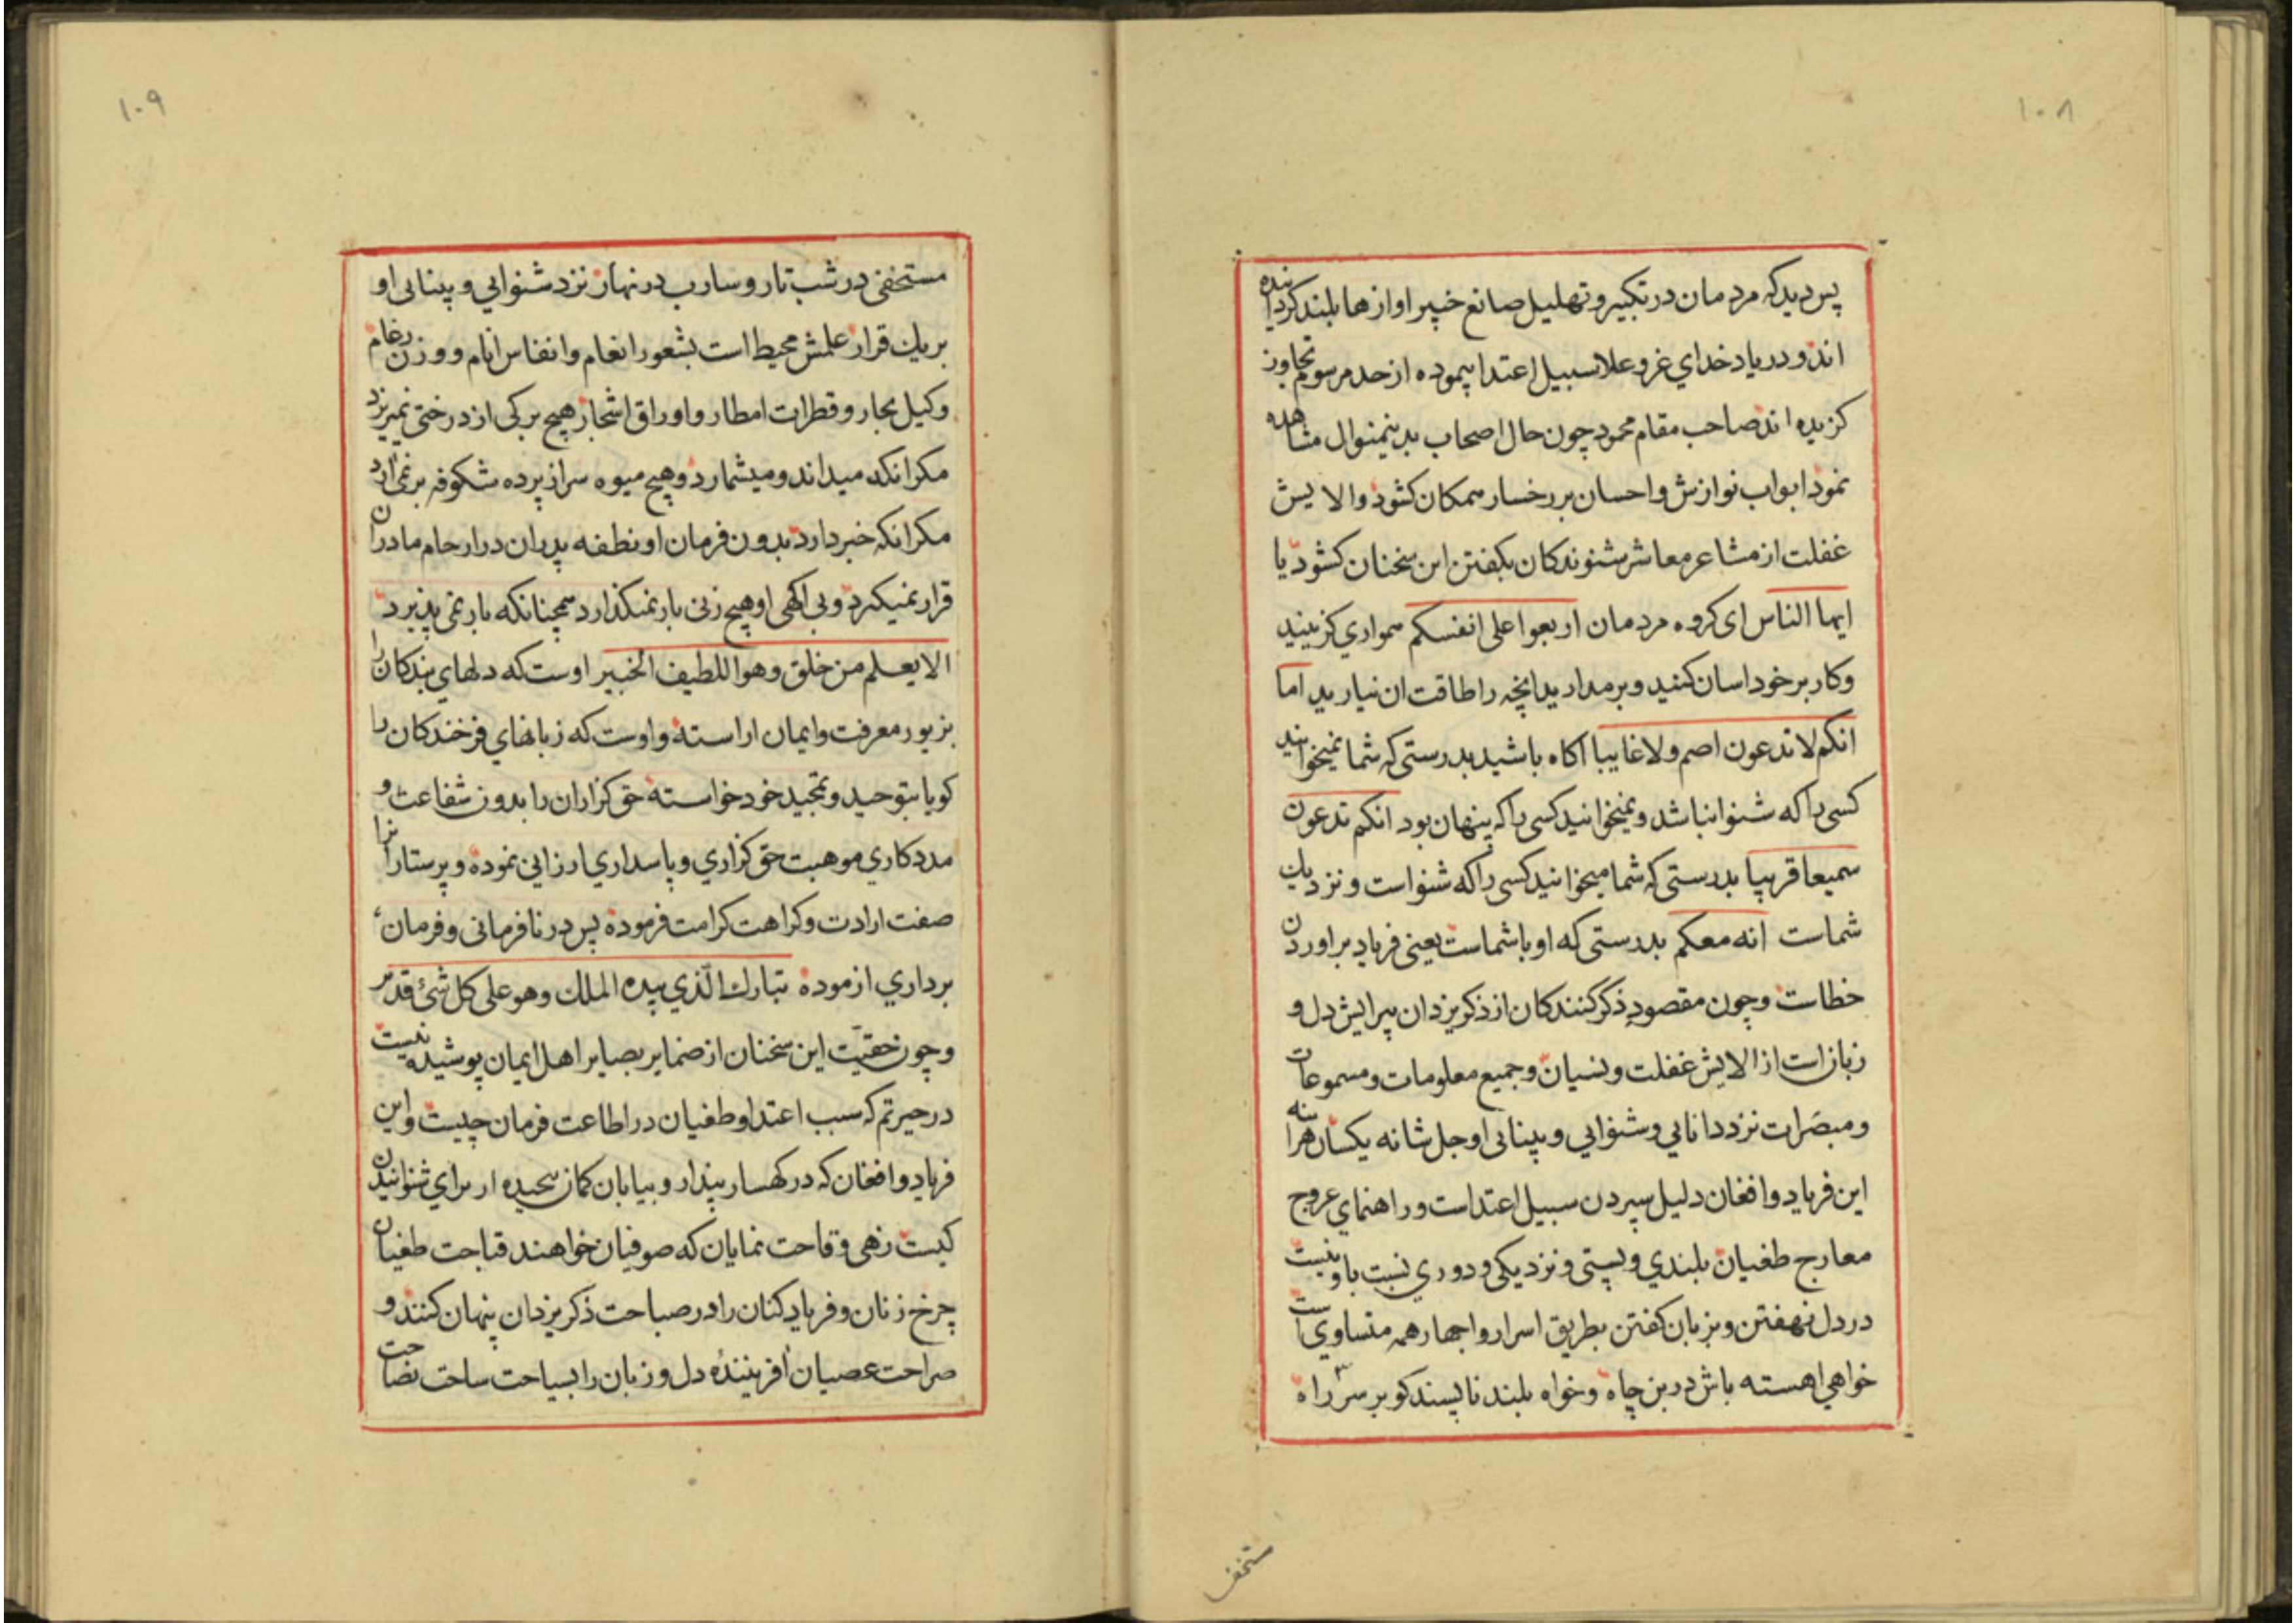 ۱۰۸
پس دید که مردمان در تکبیر و تهلیل صانع خبیر اوازها بلند کردانیده
اند و در یاد خدای عز و علا سبیل اعتدا پیموده از حد مرسوم تجاوز
کزیده اند صاحب مقام محمود چون حال اصحاب بدینمنوال مشاهده
نمود ابواب نوازش و احسان بر رخسار همکان کشود و الایش
غفلت از مشاعر معاشر شنوندکان بکفتن این سخنان کشود یا
ایها الناس ای کروه مردمان اربعوا علی انفسکم همواری کزینید
و کار بر خود اسان کنید و برمدارید انچه را طاقت ان نیارید اما
انکم لا تدعون اصم و لا غایبا اکاه باشید بدرستی که شما نمیخوانید
کسی را که شنوا نباشد و نمیخوانید کسی را که پنهان بود انکم تدعون
سمیعا قریبا بدرستی که شما میخوانید کسی را که شنواست و نزدیك
شماست انه معکم بدرستی که او با شماست یعنی فریاد براوردن
خطاست و چون مقصود ذکر کنندکان از ذکر یزدان پیرایش دل و
زبان است از الایش غفلت و نسیان و جمیع معلومات و مسموعات
و مبصرات نزد دانایی و شنوایی و بینایی او جل شانه یکسان هراینه
این فریاد و افغان دلیل سپردن سبیل اعتداست و راهنمای عروج
معارج طغیان بلندی و پستی و نزدیکی و دوری نسبت باو نیست
در دل نهفتن و بزبان کفتن بطریق اسرار و اجهار همه متساوی است
خواهی اهسته باش در بن چاه و خواه بلند ناپسند کو بر سر راه
مستخف
۱۰۹
مستخفی در شب تار و سارب در نهار نزد شنوایی و بینایی او
بر یك قرار علمش محیط است بشعور انغام و انفاس انام و وزن رغام
و کیل بحار و قطرات امطار و اوراق اشجار هیچ برکی از درختی نمیریزد
مکر انکه میداند و میشمارد و هیچ میوه سر از پرده شکوفه برنمی‌ارد
مکر انکه خبر دارد بدون فرمان او نطفه پدران در ارحام مادران
قرار نمیکیرد و بی اکهی او هیچ زنی بار نمیکذارد همچنانکه بار نمی پذیرد
الا یعلم من خلق و هو اللطیف الخبیر اوست که دلهای بندکان را
بزیور معرفت و ایمان اراسته و اوست که زبانهای فرخندکان را
کویا بتوحید و تمجید خود خواسته حق کزاران را بدون شفاعت و
مددکاری موهبت حق کزاری و پاسداری ارزانی نموده و پرستارانرا
صفت ارادت و کراهت کرامت فرموده پس در نافرمانی و فرمان
برداری ازموده تبارك الّذی بیده الملك و هو علی کل شیٔ قدیر
و چون حقیّت این سخنان از ضمایر بصایر اهل ایمان پوشیده نیست
در حیرتم که سبب اعتدا و طغیان در اطاعت فرمان چیست و این
فریاد و افغان که در کهسار پندار و بیابان کمان سحیده از برای شنوانیدن
کیست زهی وقاحت نمایان که صوفیان خواهند قباحت طغیان
چرخ زنان و فریاد کنان را در صباحت ذکر یزدان پنهان کنند و
صراحت عصیان افرینندۀ دل و زبان را بسیاحت ساحت نصاحت